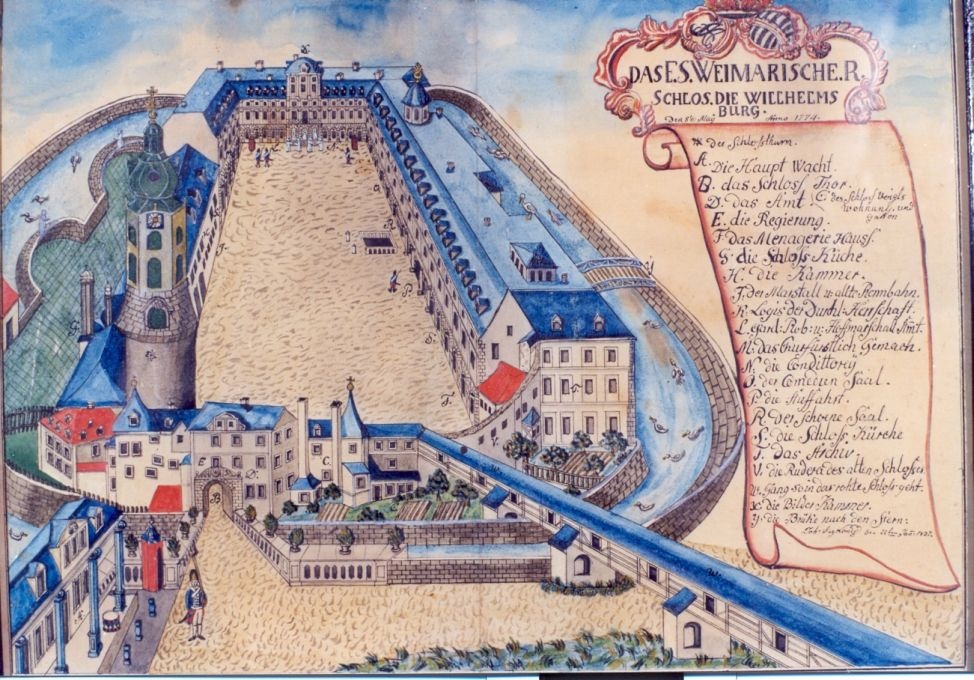 DAS.E.S.WEIMARISCHE.R.
SCHLOS.DIE WILLHELMS
BURG.
Anno 1774.
der Schlosthurn.
A. Die Haupt Wacht.
B. das Schloss Thor.
D. das Amt. C. des Schloss Voigts
Wohnung und
E. die Regierung.
F. das Menagerie Hauss.
G. die Schloss Küche.
H. die Kammer.
J. der Marstall u. allte Rennbahn.
K. Logis der Durchl. Herrschaft.
L. u. Hoffmarschall Amt.
M. das Churfürstlich Gemach.
N. die Condittorey
O. der Comedien Saal.
P. die Auffahrt.
R. der Schöne Saal.
S. die Schloss Kürche
T. das Archiv
V. die Rudera des alten Schlosses
W. Gang so in das rohte Schloss geht.
X. die Bilder Kammer.
Y. die Brüke nach den Stern: